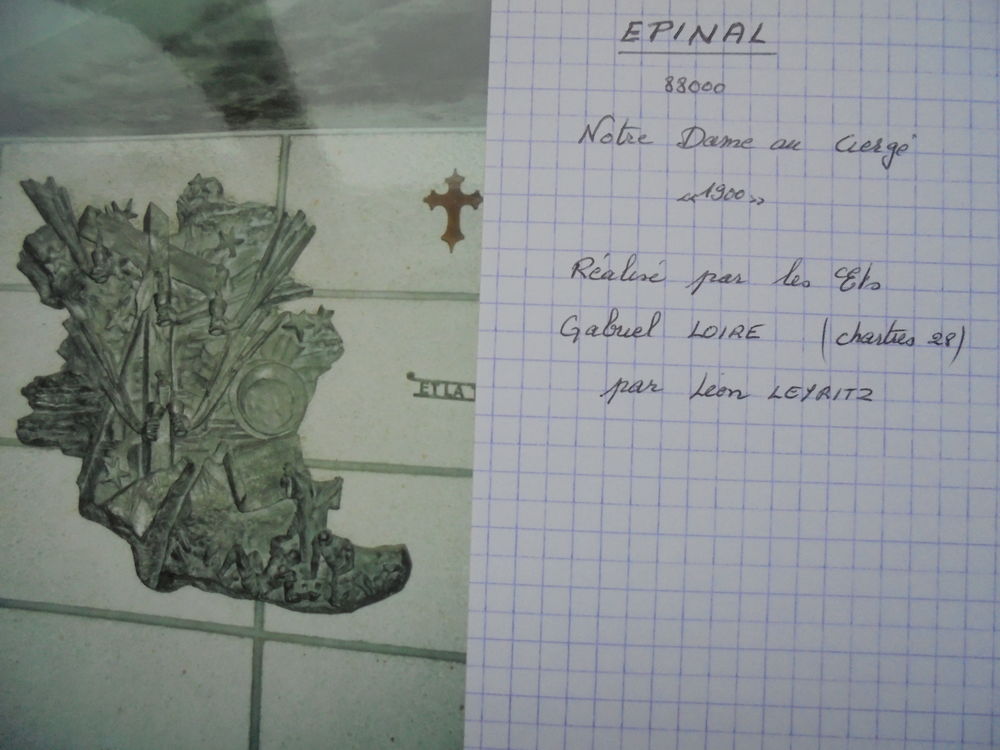 EPINAL
88000
Notre Dame au Cierge
«1900»
Réalisé par les Ets
Gabriel LOIRE (chartres 28)
par Léon LEYRITZ
ET LA